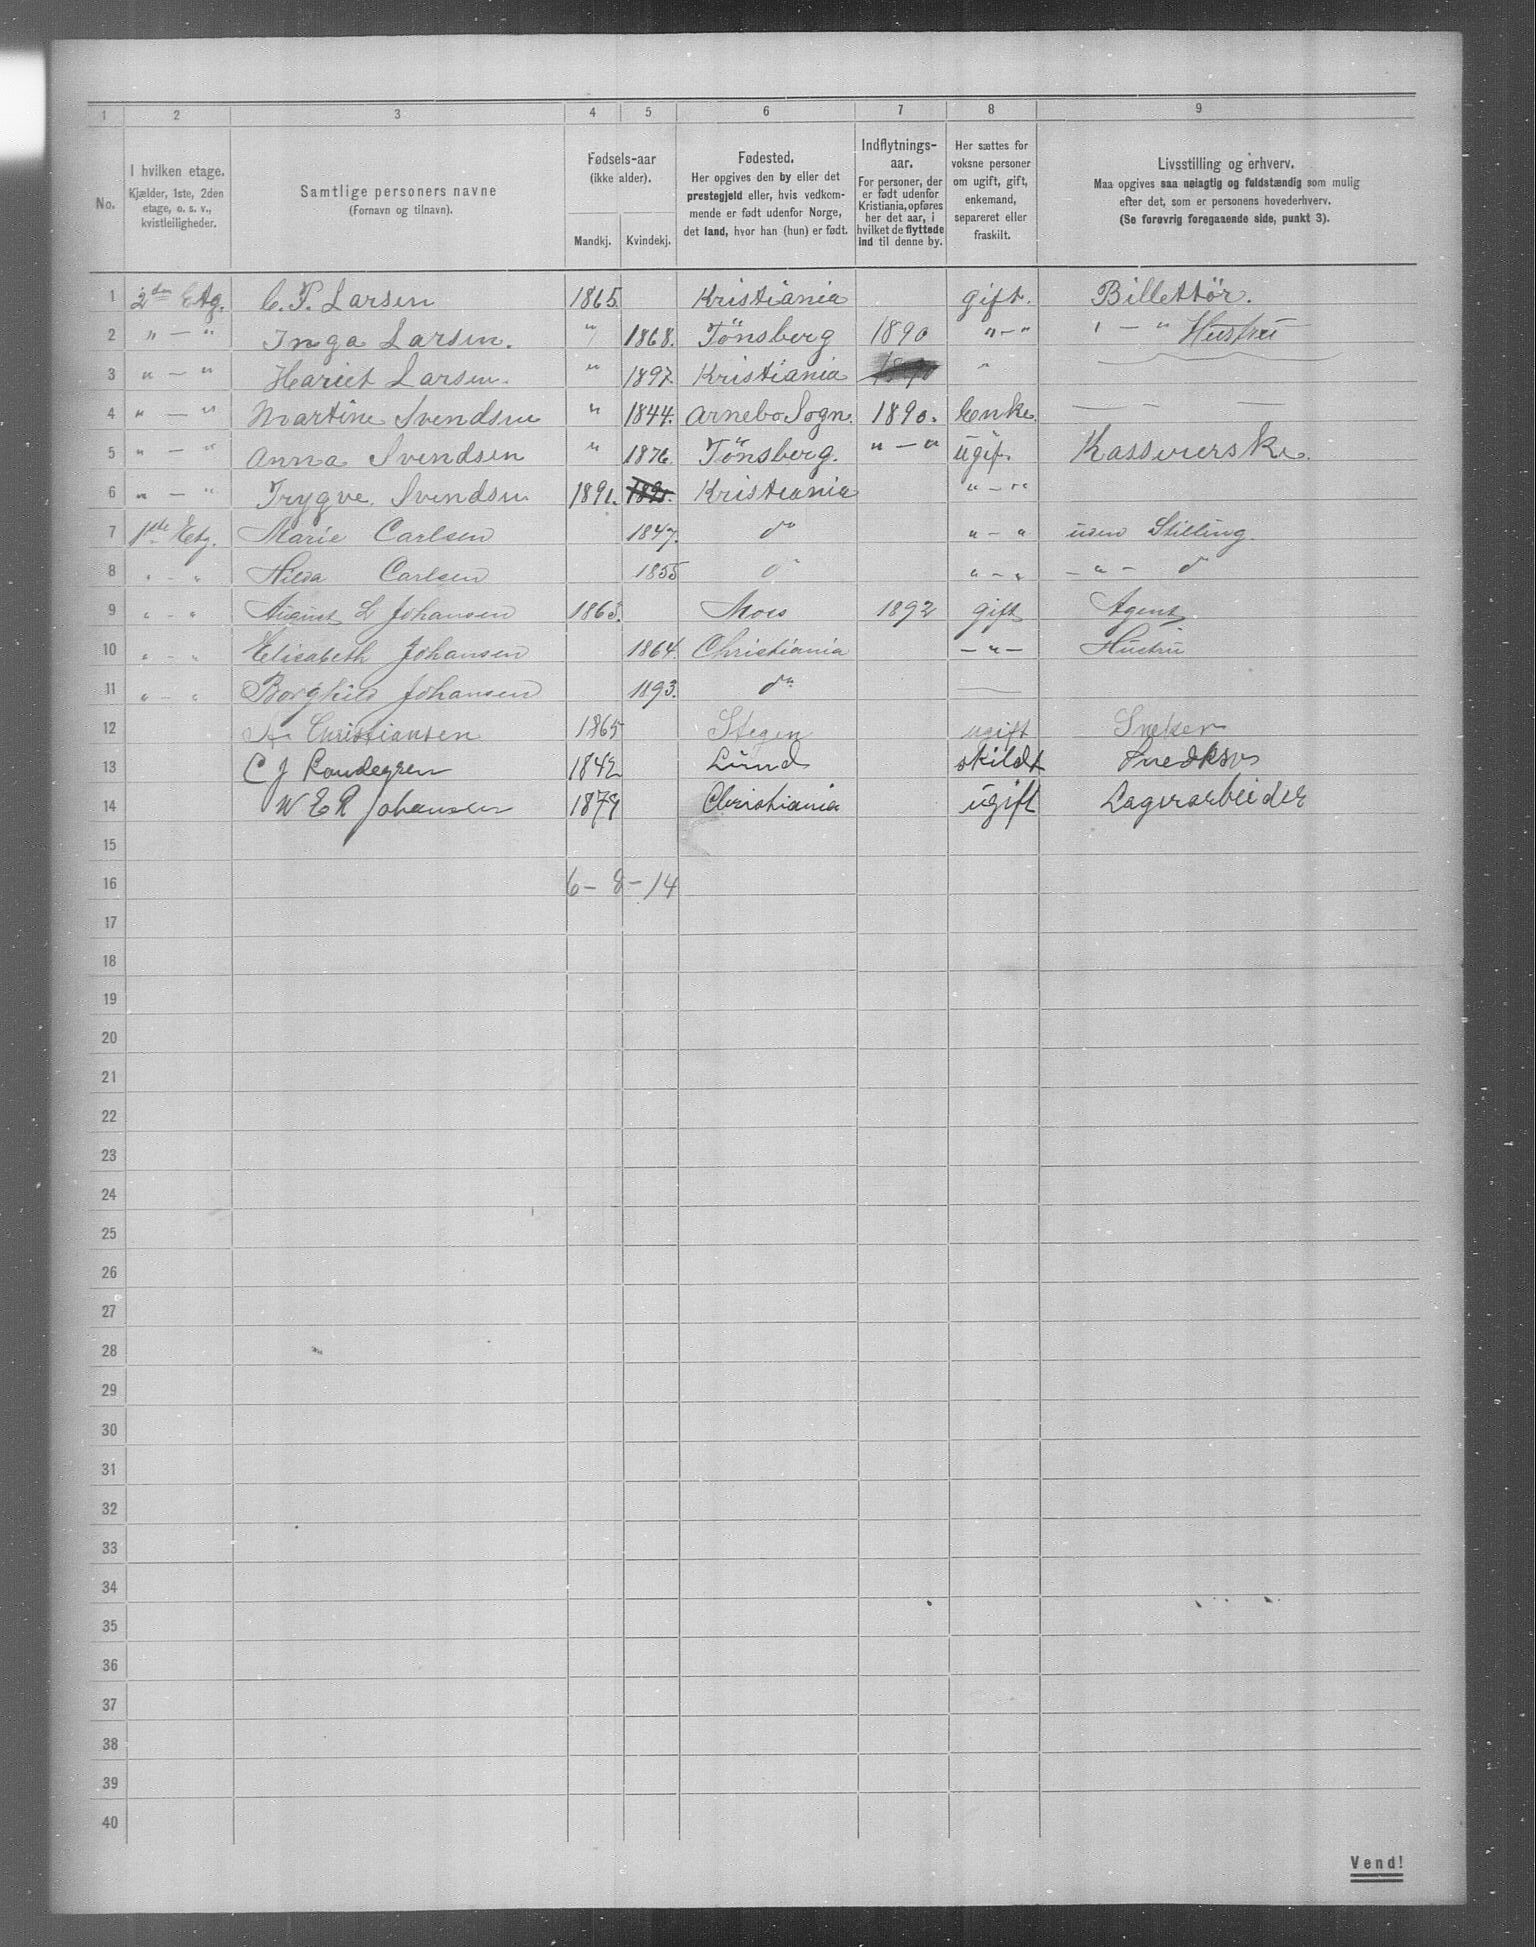 1 2 3 4 5 6 7 8 9
No.
I hvilken etage.
Kjælder, 1ste, 2den
etage, o. s. v.,
kvistleiligheder.
Samtlige personers navne
(Fornavn og tilnavn).
Fødsels-aar
(ikke alder).
Mandkj. Kvindekj.
Fødested.
Her opgives den by eller det
prestegjeld eller, hvis vedkom-
mende er født udenfor Norge,
det land, hvor han (hun) er født.
Indflytnings-
aar.
For personer, der
er født udenfor
Kristiania, opføres
her det aar, i
hvilket de flyttede
ind til denne by.
Her sættes for
voksne personer
om ugift, gift,
enkemand,
separeret eller
fraskilt.
Livsstilling og erhverv.
Maa opgives saa nøiagtig og fuldstændig som mulig
efter det, som er personens hovederhverv.
(Se forøvrig foregaaende side, punkt 3).
1 2den Etg. C. P. Larsen 1865 Kristiania gift. Billettör.
2 " — " Inga Larsen. " 1868. Tönsberg 1890 " — " " — " Hustru
3 " — " Hariet Larsen. " 1897 Kristiania "
4 " — " Martine Svendsen " 1844. Arnebo Sogn. 1890. Enke — — —
5 " — " Anna Svendsen " 1876. Tönsberg. " — " ugif. Kassvierske.
6 " — " Trygve Svendsen 1891. Kristiania " — "
7 1ste Etg. Marie Carlsen 1847. do " — " uden Stilling
8 " — " Hilda Carlsen 1855 do " — " — " — d
9 " — " August L Johansen 1863. Moss 1892 gift Agent
10 " — " Elisabeth Johansen 1864. Christiania — " — Hustru
11 " — " Borghild Johansen 1893. do —
12 Christiansen 1865 Stegen ugift Sneker
13 C J 1842 Lund skildt Snedker
14 W E R Johansen Christiania ugift Lagerarbeider
15
16 6 – 8 – 14
17
18
19
20
21
22
23
24
25
26
27
28
29
30
31
32
33
34
35
36
37
38
39
40
Vend!